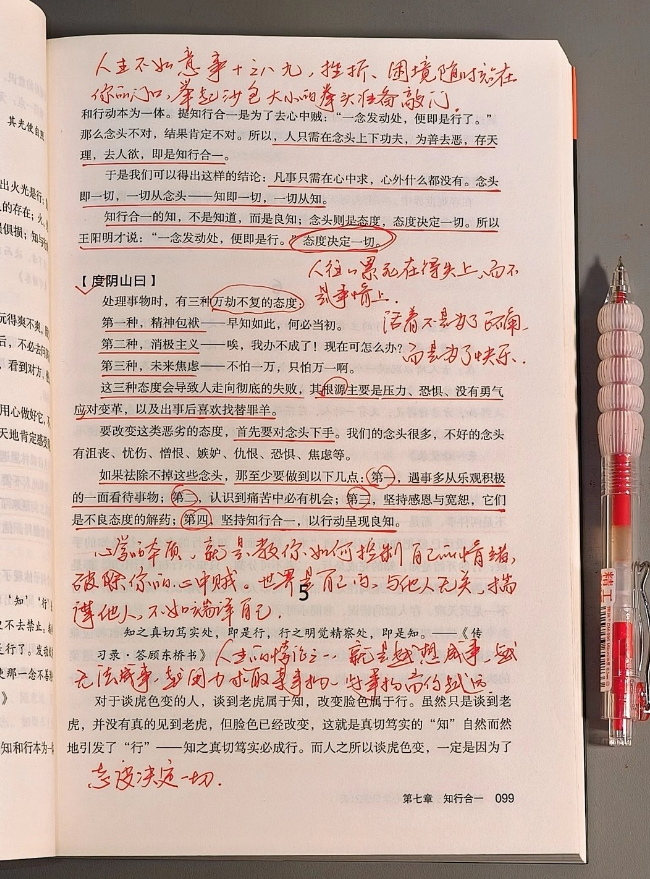 人生不如意事十之八九，挫折、困境随时会在
你的门口，举起沙包大小的拳头准备敲门。
和行动本为一体。提知行合一是为了去心中贼：“一念发动处，便即是行了。”
那么念头不对，结果肯定不对。所以，人只需在念头上下功夫，为善去恶，存天
理，去人欲，即是知行合一。
于是我们可以得出这样的结论：凡事只需在心中求，心外什么都没有。念头
即一切，一切从念头——知即一切，一切从知。
知行合一的知，不是知道，而是良知；念头则是态度，态度决定一切。所以
王阳明才说：“一念发动处，便即是行。”态度决定一切。
人往往累死在得失上，而不
是事情上。
【度阴山曰】
处理事物时，有三种万劫不复的态度：
活着不是为了
而是为了快乐．
第一种，精神包袱——早知如此，何必当初。
第二种，消极主义——唉，我办不成了！现在可怎么办？
第三种，未来焦虑——不怕一万，只怕万一啊。
这三种态度会导致人走向彻底的失败，其根源主要是压力、恐惧、没有勇气
应对变革，以及出事后喜欢找替罪羊。
要改变这类恶劣的态度，首先要对念头下手。我们的念头很多，不好的念头
有沮丧、忧伤、憎恨、嫉妒、仇恨、恐惧、焦虑等。
如果祛除不掉这些念头，那至少要做到以下几点：第一，遇事多从乐观积极
的一面看待事物；第二，认识到痛苦中必有机会；第三，坚持感恩与宽恕，它们
是不良态度的解药；第四，坚持知行合一，以行动呈现良知。
心学的本质，就是教你如何控制自己的情绪，
破除你的心中贼。世界是自己的，与他人无关，揣
摩他人，不如端详自己．
5
知之真切笃实处，即是行，行之明觉精察处，即是知。——《传
习录·答顾东桥书》
人生的悖论之一，就是越想成事，越
无法成事，越用力求取某事物，与事物离的越远
对于谈虎色变的人，谈到老虎属于知，改变脸色属于行。虽然只是谈到老
虎，并没有真的见到老虎，但脸色已经改变，这就是真切笃实的“知”自然而然
地引发了“行”——知之真切笃实必成行。而人之所以谈虎色变，一定是因为了
态度决定一切．
第七章 知行合一 099
精工